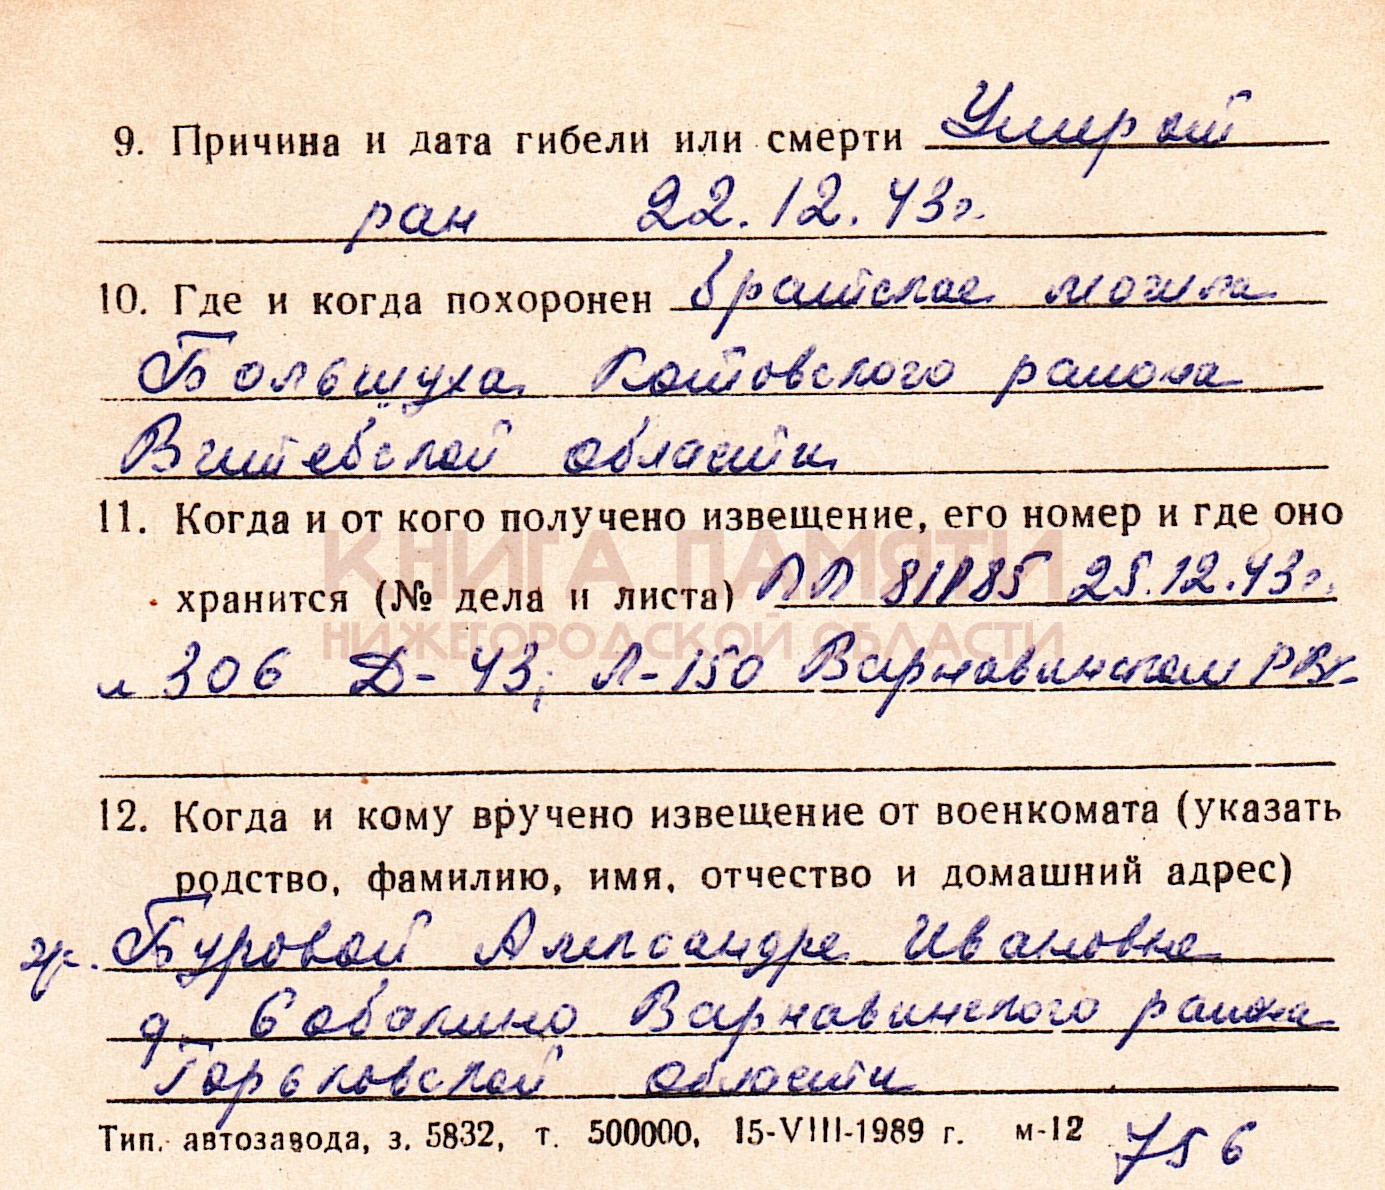 9. Причина и дата гибели или смерти Умер от
ран 22.12.43г.
10. Где и когда похоронен братская могила
Большуха Котовского района
Витебской области
11. Когда и от кого получено извещение, его номер и где оно
КНИГА ПАМЯТИ
хранится (№ дела и листа) ПП 25.12.43г.
НИЖЕГОРОДСКОЙ ОБЛАСТИ
306 Д-43; Л-150 Варнавинском РВК
12. Когда и кому вручено извещение от военкомата (указать
родство, фамилию, имя, отчество и домашний адрес)
Буровой Александре Ивановне
д. Варнавинского района
Горьковской области
Тип. автозавода, з. 5832, т. 500000, 15-VIII-1989 г. м-12 756